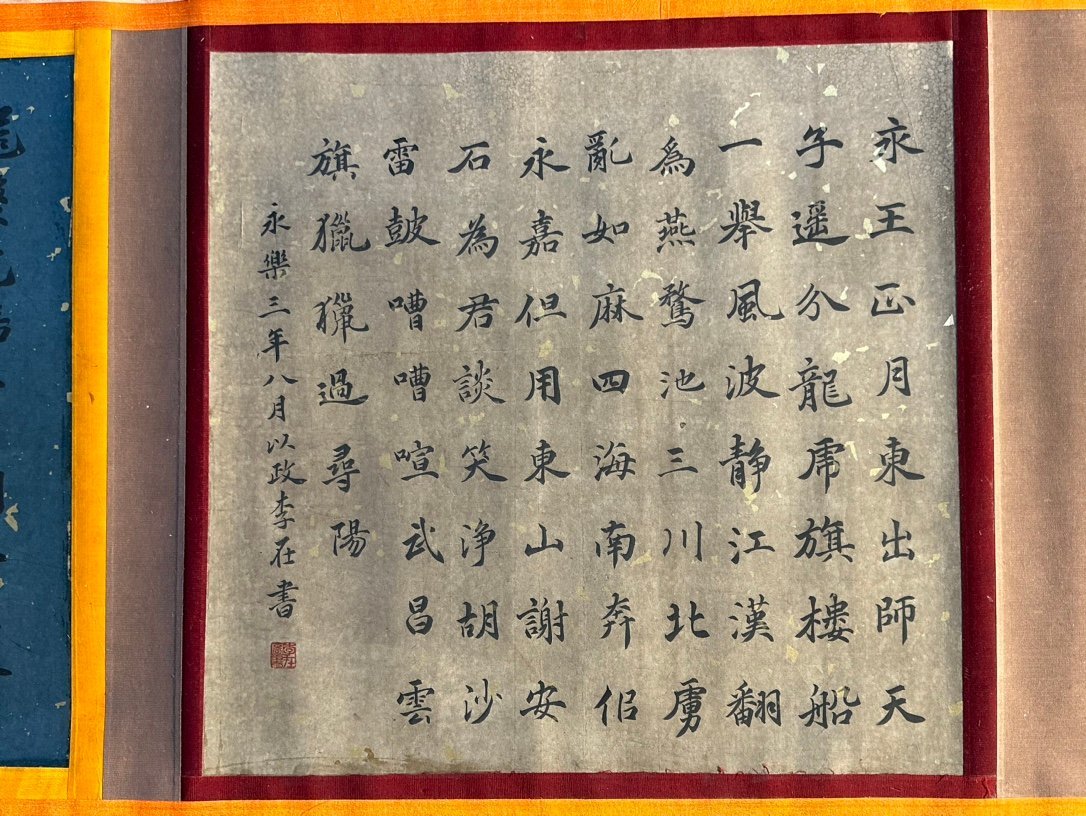 永王正月東出師天
子遥分龍虎旗樓船
一舉風波靜江漢翻
爲燕鶩池三川北虜
亂如麻四海南奔佀
永嘉但用東山謝安
石為君談笑浄胡沙
雷皷嘈嘈喧武昌雲
旗獵獵過尋陽
永樂三年八月以政李在書